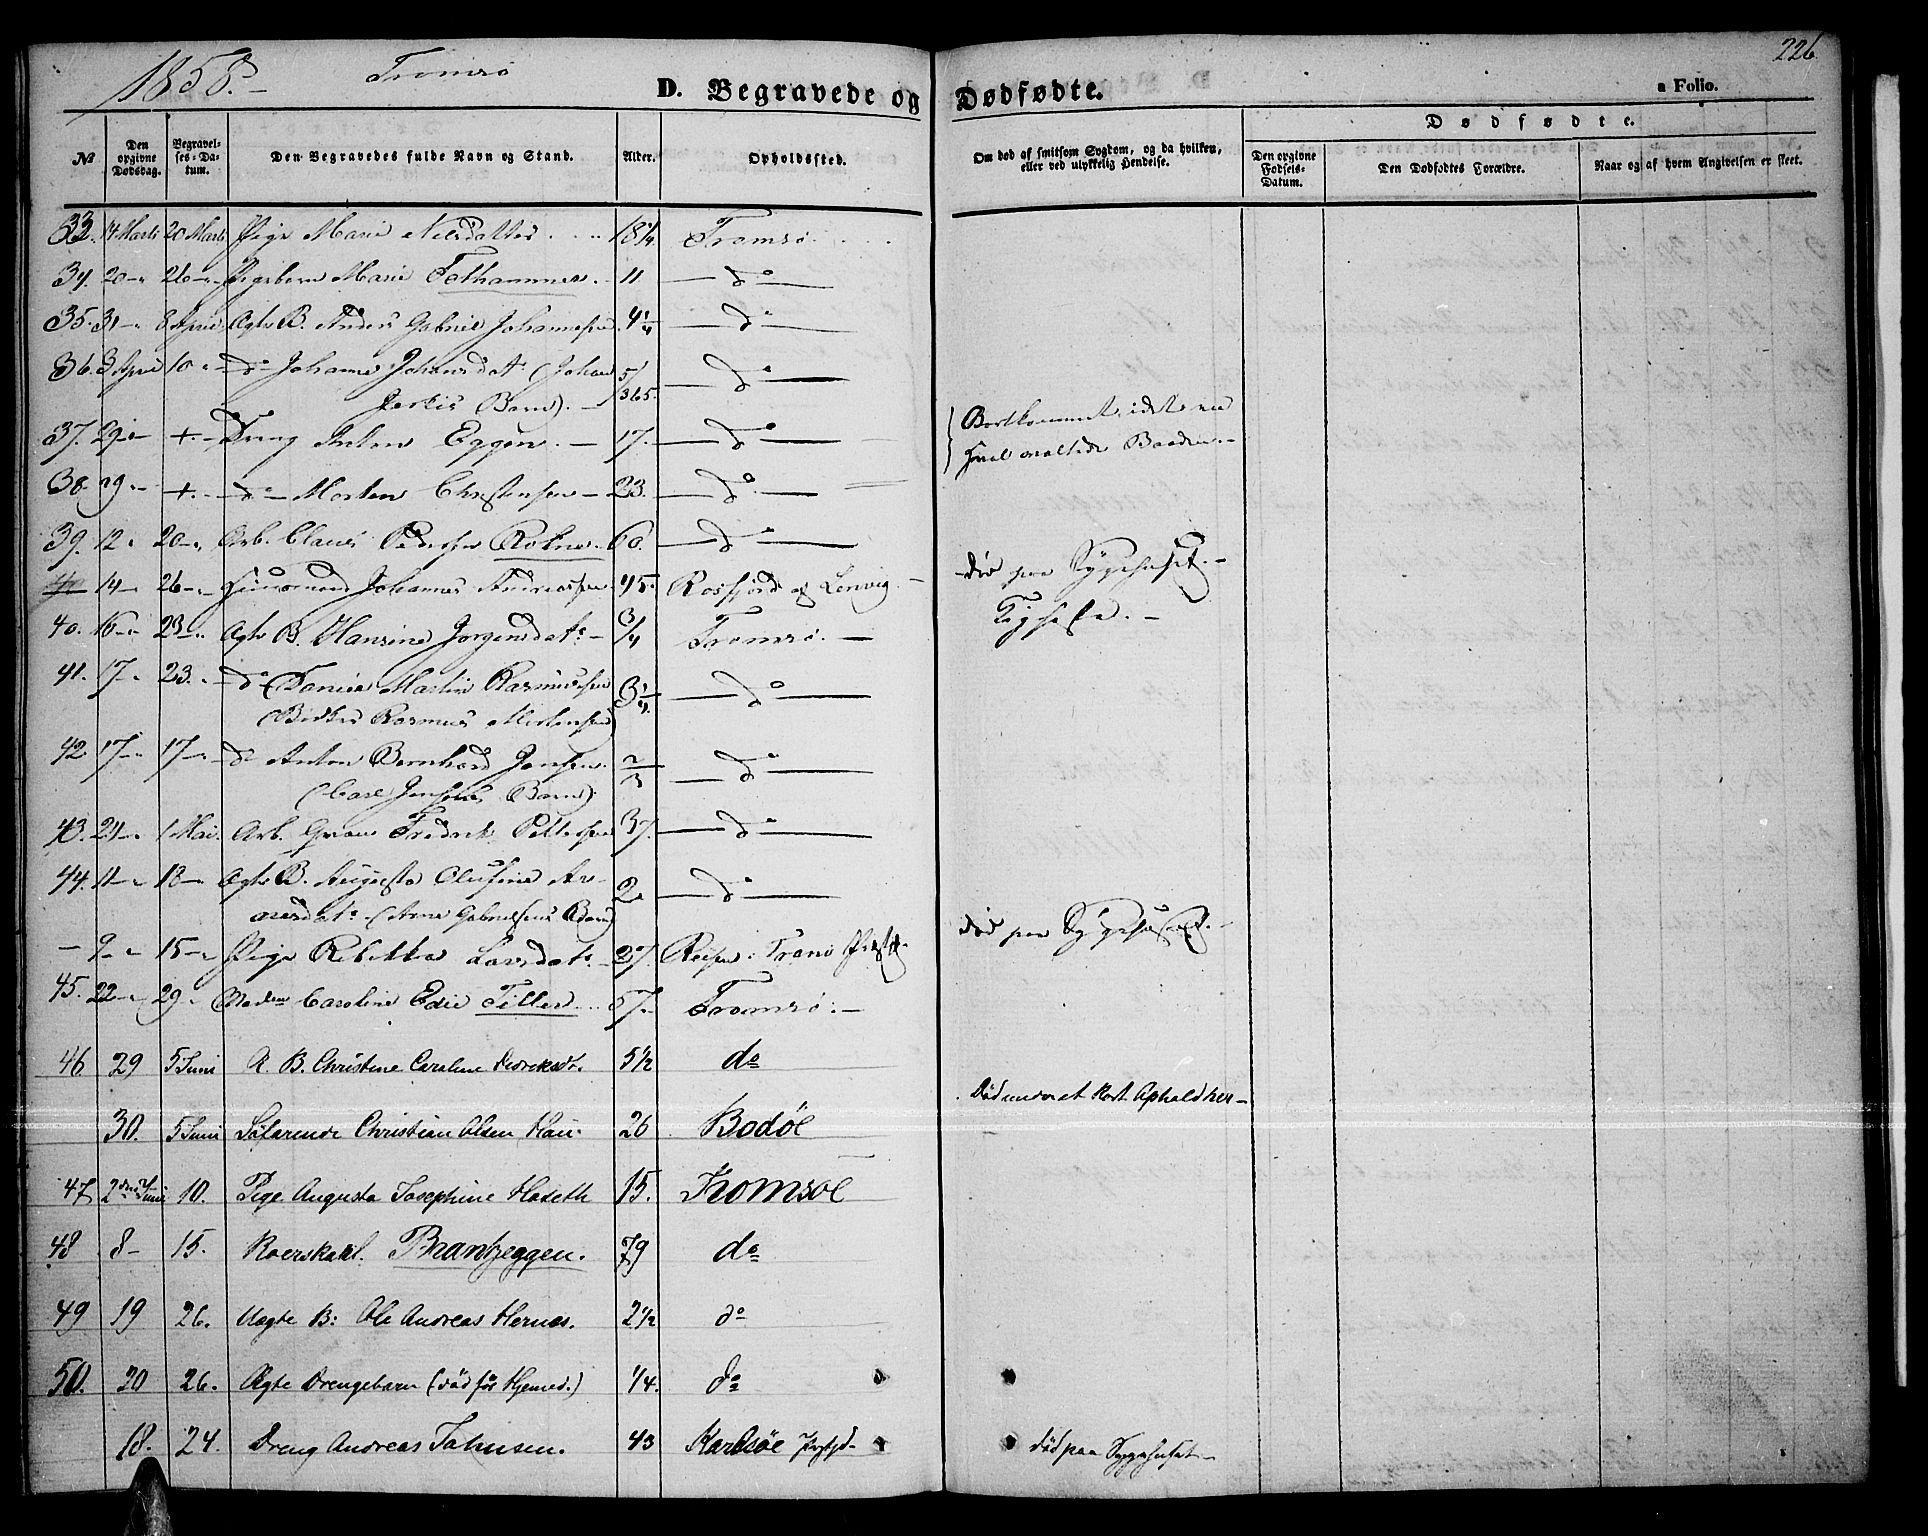 1858.
Tromsø
226
D. Begravede og Dødfødte.
a Folio.
Dødfødte.
№
Den opgivne Dødsdag.
Begravelses-Datum.
Den Begravedes fulde Navn og Stand.
Alder.
Opholdssted.
Om død af smitsom Sygdom, og da hvilken, eller ved ulykkelig Hendelse.
Den opgivne Fødsels-Datum.
Den Dødfødtes Forældre.
Naar og af hvem Angivelsen er skeet.
33. 14 Marts 20 Marts Pige Marie Nilsdatter 18¼ Tromsø.
34. 20 26 Pigebarn Marie Fethammer. 11 do
35. 31 8 April Ægte B. Anders Gabriel Johannesen 4¼ do
36. 3 April 10 do Johanna Johansdatr (Johan 5/365 do
Barn).
37. 29 +. Dreng Anton Eggen. 17. do Bortkommet, idet en
38. 29 +. do Morten Christensen 23. do Hval Baaden.
39. 12 20 Arb. Claus Pedersen 60. do
40 14 26 Huusmand Johannes Andreassen 45. Rosfjord af Lenvig. død paa Sygehuset.
40. 16 23 Ægte B. Hansine Jørgensdatr 3/4 Tromsø.
41. 17 23. do Daniel Martin Rasmussen 3¼ do
(Rasmus Mortensen)
42. 17 17 do Anton Bernhard Jensen. 2/3 do
(Carl Jensens Barn)
43. 24 1 Mai. Arb. Fredrik Pettersen 37. do
44. 11 18 Ægte B. Augusta Olufine Ar- 2 do
nesdatr (Arne Gabrielsens Barn)
9 15 Pige Rebekka Larsdatr 27. Reisen i Tranø død paa Sygehuset.
45. 22 29 Madam Caroline Edie Tiller 57. Tromsø.
46 29 5 Juni Æ. B. Christine Caroline Didriksdt. 5½ do
30. 5 Juni Søfarende Christian Olsen Hau 26 Bodøe Død under et kort Ophold her
47 2den Juni 10. Pige Augusta Josephine Hæseth 15. Tromsøe
48 8 15. Brantzeggen. 79 do
49 19 26. Uægte B: Ole Andreas Hernæs. 2½ do
50. 20 26. Ægte Drengebarn (død før Hjemed.) 1/4. do
18. 24. Dreng Andreas Johnsen. 43 Karlsøe Prstgd død paa Sygehuset